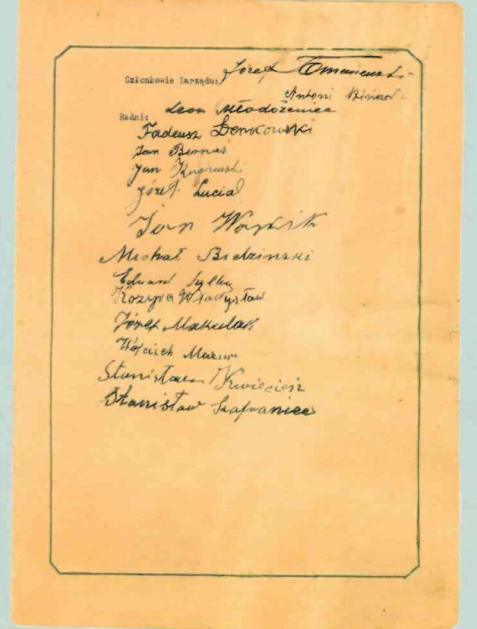 Członkowie Zarządu: Józef
Antoni
Radni: Leon Młodożeniec
Tadeusz Denkowski
Jan Bernaś
Jan
Józef Lucial
Jan Wojcik
Michał Budzinski
Edward
Kozypa Władysław
Józef Makulak
Wójcich Mazur
Stanisław Kwiecień
Stanisław Szafraniec